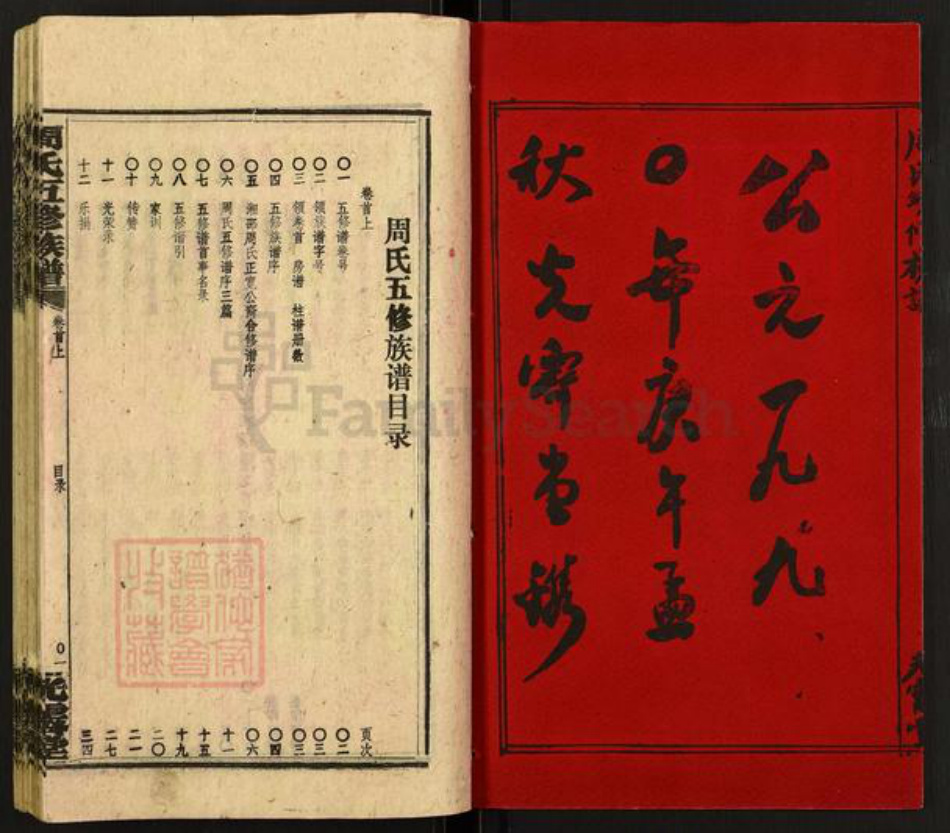 公元一九九
〇年庚午孟
秋光霁堂镌
周氏五修族谱目录
卷首上 页次
〇一 五修谱卷号 〇二
〇二 领族谱字号 〇三
〇三 领卷首 房谱 柱谱册数 〇三
〇四 五修族谱序 〇四
〇五 湘邵周氏正宽公裔合修谱序 〇六
〇六 周氏五修谱序三篇 十一
〇七 五修谱首事名录 十五
〇八 五修谱引 十九
〇九 家训 二〇
〇十 传赞 二一
十一 光荣录 二七
十二 乐捐 三四
周氏五修族谱 卷首上 目录 〇一 光霁堂
FamilySearch